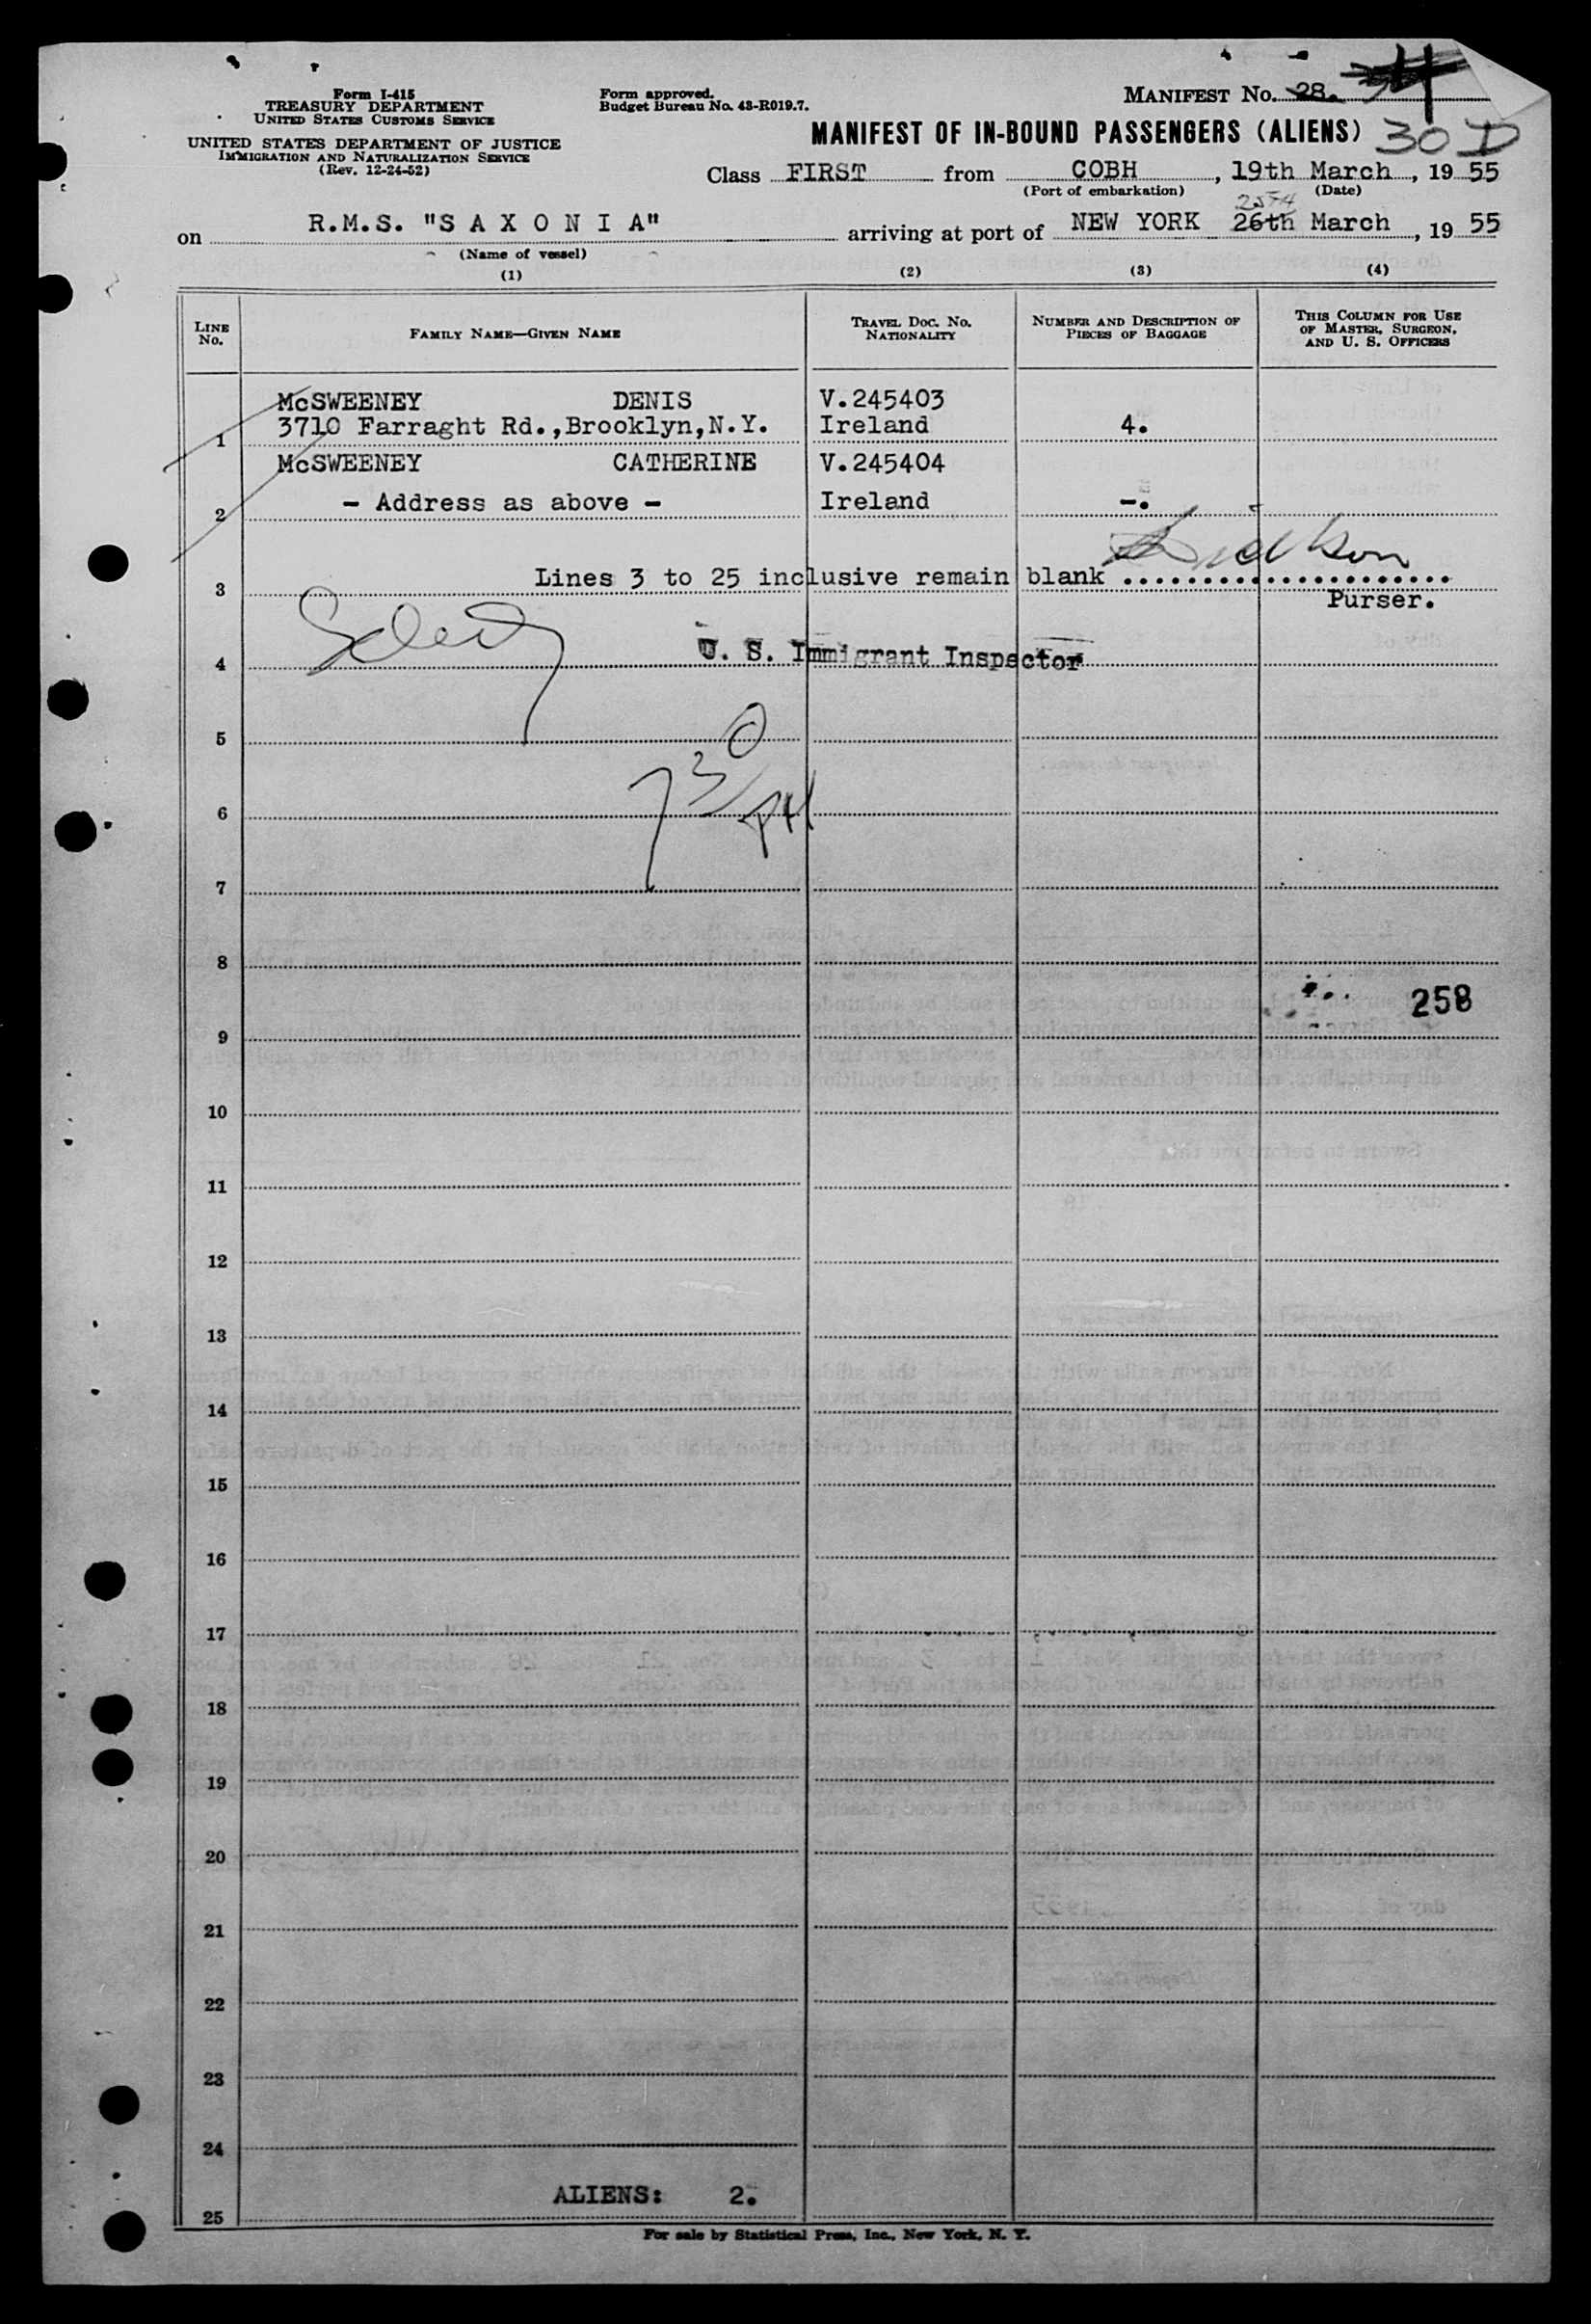 Form I-415
TREASURY DEPARTMENT
UNITED STATES CUSTOMS SERVICE
UNITED STATES DEPARTMENT OF JUSTICE
IMMIGRATION AND NATURALIZATION SERVICE
(Rev. 12-24-52)
Form approved.
Budget Bureau No. 43-R019.7.
MANIFEST No. 28.
MANIFEST OF IN-BOUND PASSENGERS (ALIENS) 30 D
Class FIRST from COBH, 19th March, 19 55
(Port of embarkation) (Date)
on R.M.S. "S A X O N I A" arriving at port of NEW YORK 26th March, 19 55
(Name of vessel)
(1) (2) (3) (4)
LINE No. FAMILY NAME—GIVEN NAME TRAVEL DOC. No. NATIONALITY NUMBER AND DESCRIPTION OF PIECES OF BAGGAGE THIS COLUMN FOR USE OF MASTER, SURGEON, AND U. S. OFFICERS
McSWEENEY DENIS V.245403
1 3710 Farraght Rd.,Brooklyn,N.Y. Ireland 4.
McSWEENEY CATHERINE V.245404
2 - Address as above - Ireland -.
3 Lines 3 to 25 inclusive remain blank ......................
Purser.
4 U. S. Immigrant Inspector
5
6 7 30 PM
7
8
258
9
10
11
12
13
14
15
16
17
18
19
20
21
22
23
24
ALIENS: 2.
25
For sale by Statistical Press, Inc., New York, N. Y.